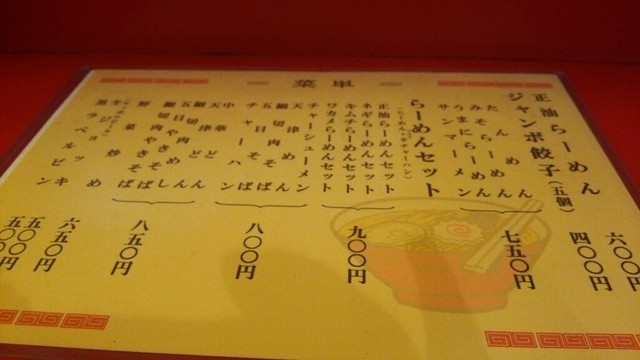 菜単
正油らーめん
六〇〇円
ジャンボ餃子(五個)
四〇〇円
たんめん
みそらーめん
うまにらーメン
サンマーメン
七五〇円
らーめんセット
(らーめん+半チャーハン)
正油らーめんセット
ネギらーめんセット
キムチらーめんセット
ワカメらーめんセット
九〇〇円
チャーシューメン
天津めん
細切肉そば
五目そば
チャーハン
八〇〇円
中華どん
天津どん
細切肉やきそば
五目やきそば
八五〇円
野菜炒め
六五〇円
五〇〇円
五〇〇円